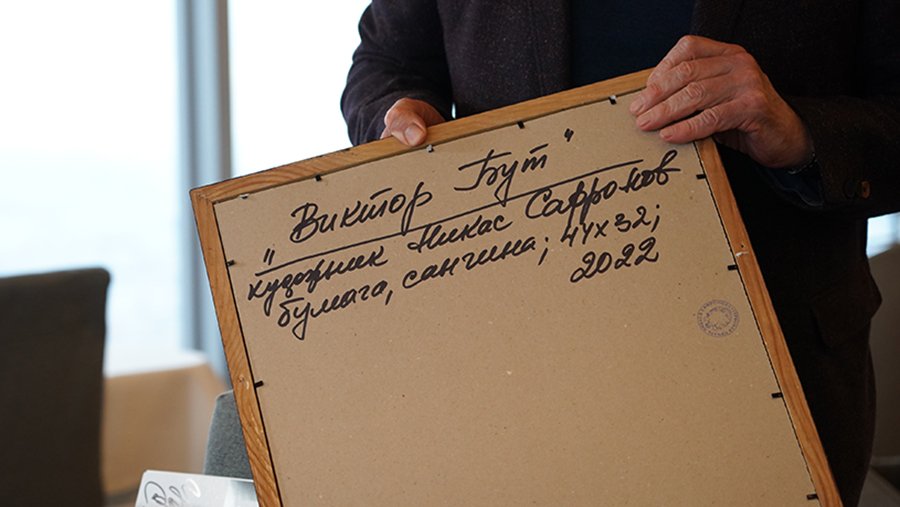 „Виктор Бут"
художник Никас Сафронов
бумага, сангина; 44х32;
2022